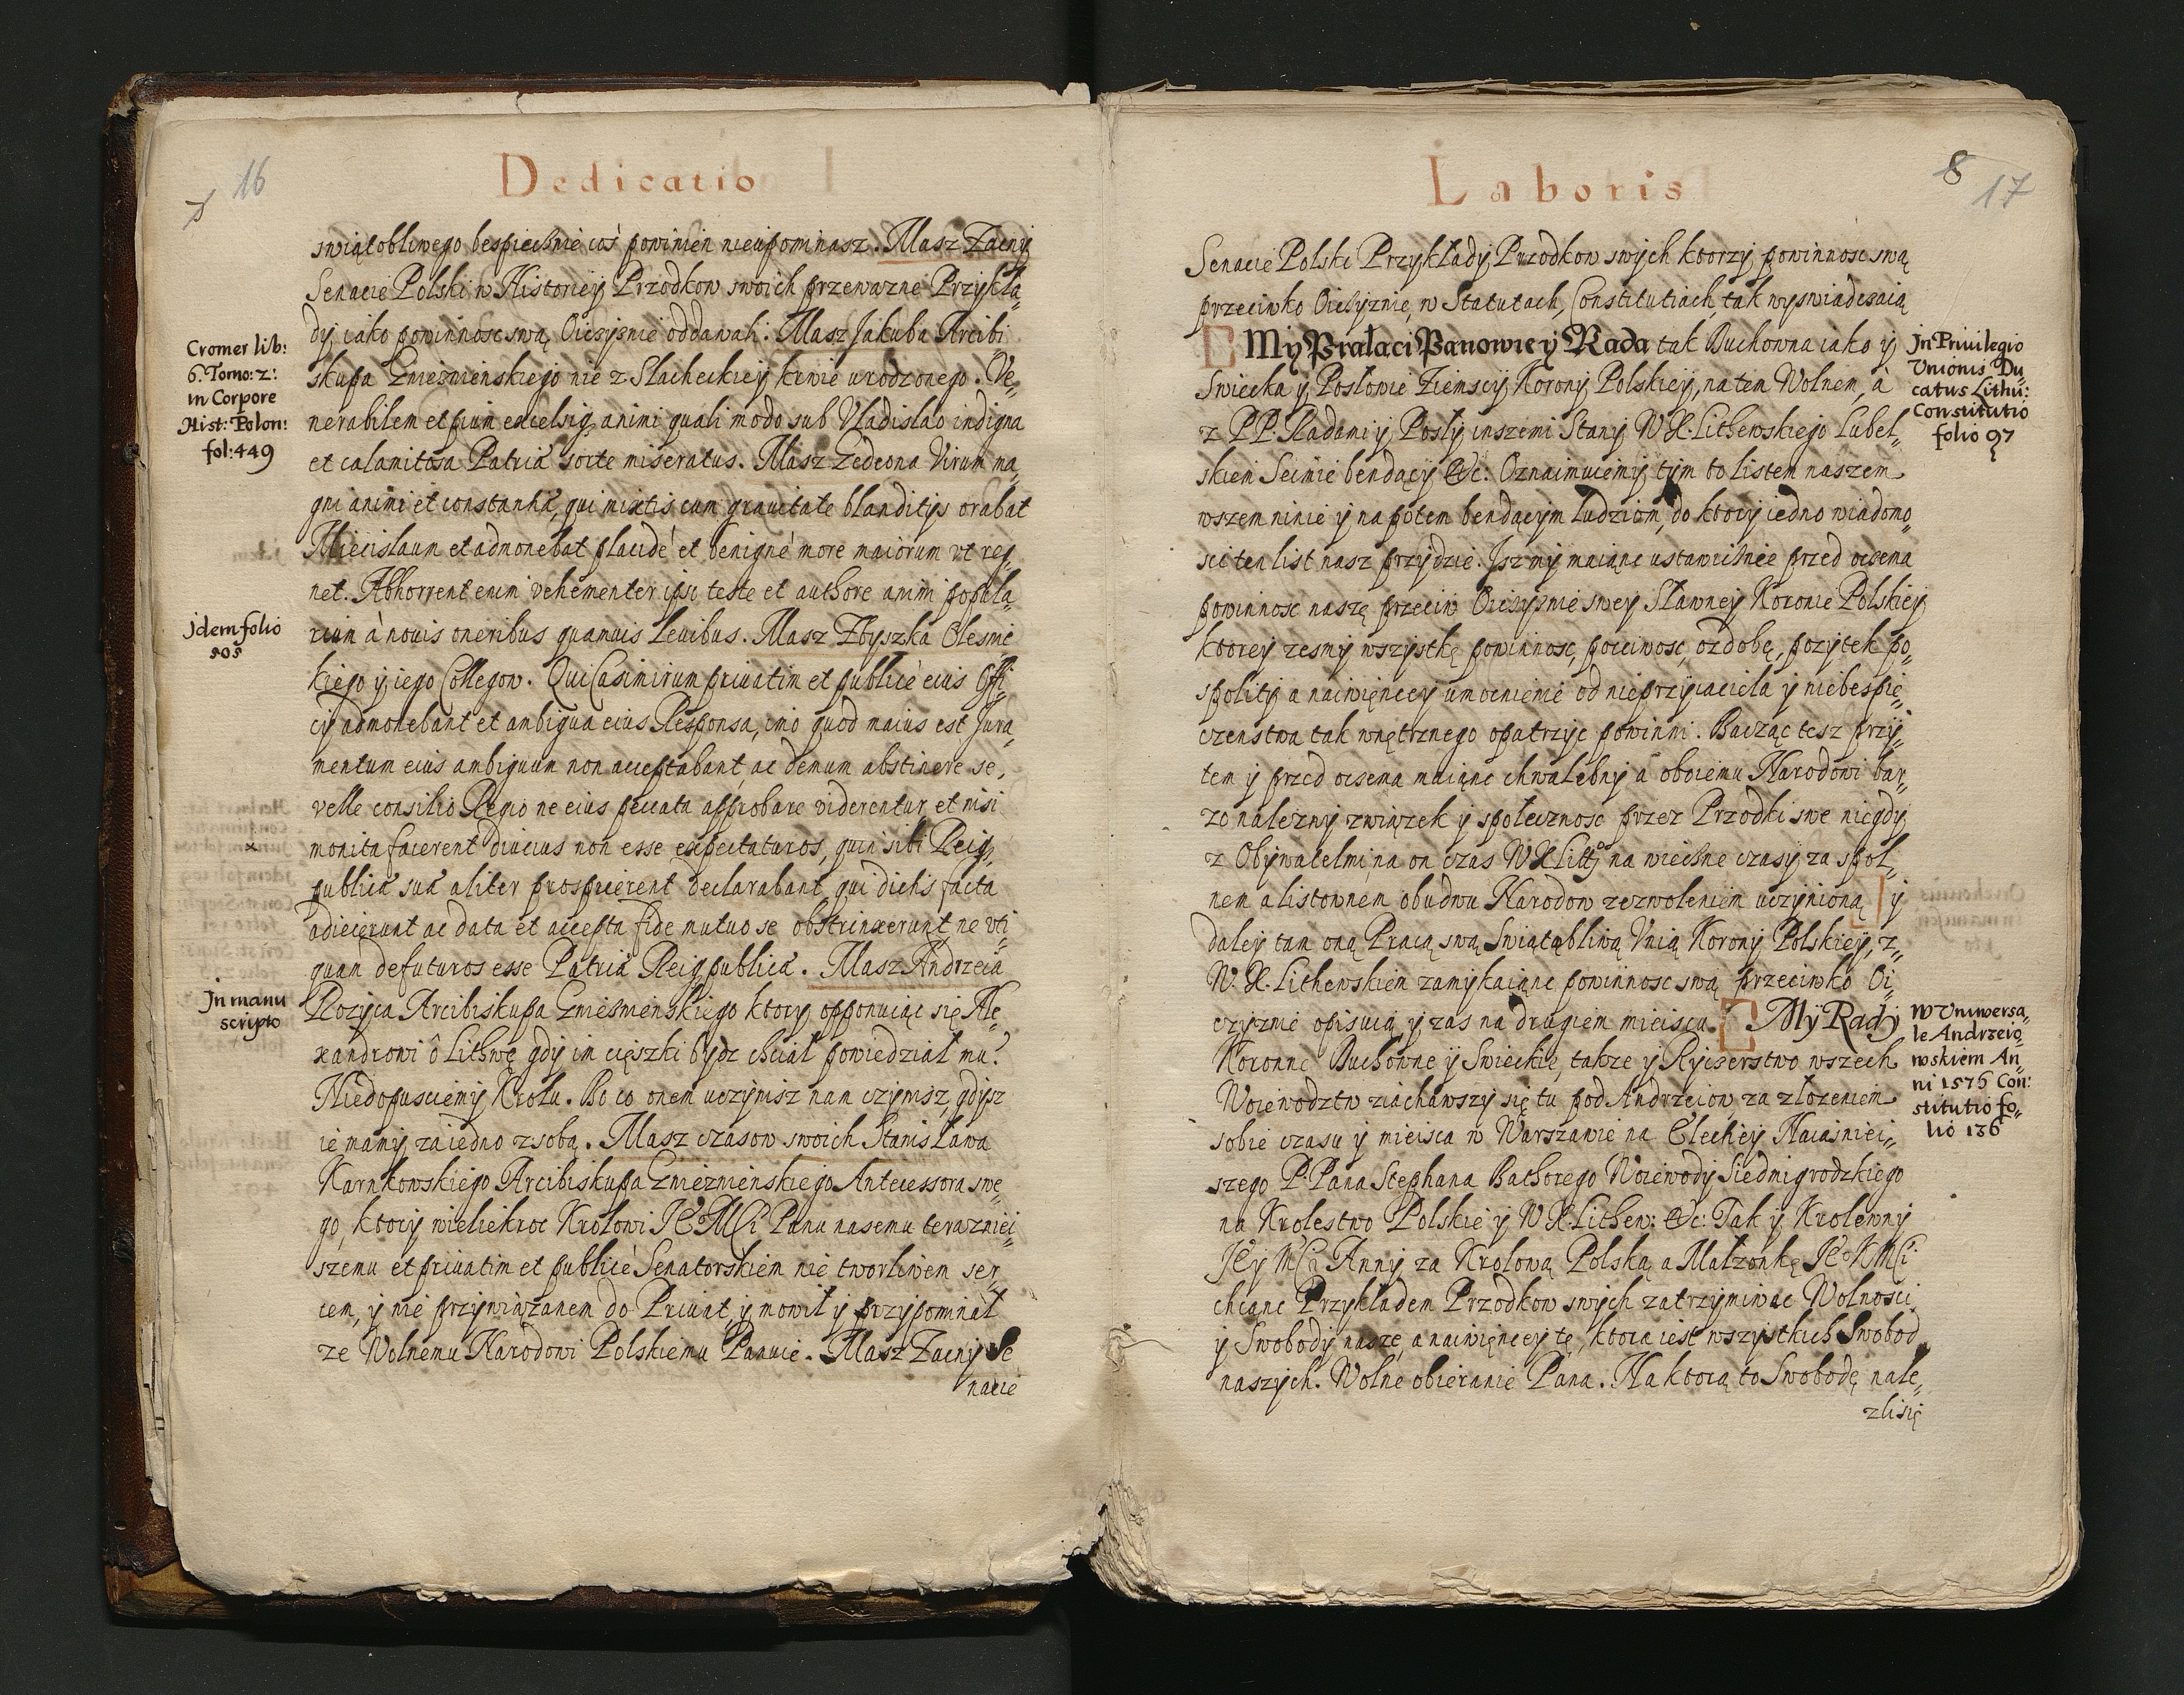 16
Dedicatio
swiątobliwego bespiecznie coś powinien nieupominasz. Masz Zacny
Senacie Polski w Historiey Przodkow swoich przewazne Przykła„
dy iako powinnosc swą Oiczyznie oddawali: Masz Jakuba Arcibi
skupa Gnieznienskiego nie z Slacheckiey krwie urodzonego. Ve„
nerabilem et pium excelsię animi quali modo sub Vladislao indigna
et calamitosa Patriæ sorte miseratus. Masz Zedeona Virum ma„
gni animi et constantiæ, qui mixtis cum grauitate blanditijs orabat
Miecislaum et admonebat placidè et benignè more maiorum vt reg„
net. Abhorrent enim vehementer ipso teste et authore animi popula„
rium à nouis oneribus quamuis leuibus. Masz Zbyszka Olesnic
kiego y iego Collegow. Qui Casimirum priuatim et publicè eius Offi„
cij admonebant et ambigua eius Responsa, imo quod maius est Jura„
mentum eius ambiguum non acceptabant, ac demum abstinere se,
velle consilio Regio ne eius peccata approbare viderentur, et nisi
monita facerent diucius non esse expectaturos, quin sibi Reig„
publicæ suæ aliter prospicerent declarabant, qui dictis facta
adiecerunt ac data et accepta fide mutuo se obstrinxerunt ne vti„
quam defuturos esse Patriæ Reigpublicæ. Masz Andrzeia
Rozyca Arcibiskupa Gnieznienskiego ktory opponuiąc się Ale„
xandrowi ô Lithwę gdy im cięszki bydz chciał powiedział mu:
Niedopusciemy Krolu. Bo co onem uczynisz nam czynisz, gdysz
ie mamy zaiedno z sobą. Masz czasow swoich Stanisława
Karnkowskiego Arcibiskupa Gnieznienskiego Antecessora swe„
go, ktory wieliekroc Krolowi JE° MCi Panu nasemu terazniei„
szemu et priuatim et publicè Senatorskiem nie tworliwem ser„
cem, y nie przywiązanem do Priuat, y mowił y przypominał
ze Wolnemu Narodowi Polskiemu Panuie. Masz Zacny Se
nacie
Cromer lib:
6. Tomo: 2:
in Corpore
Hist: Polon:
fol: 449
Jdem folio
505
Jn manu
scripto
8
17
Laboris
Senacie Polski Przykłady Przodkow swych ktorzy powinnosc swą
przeciwko Oiczyznie, w Statutach, Constitutiach, tak wyswiadczaią
My Prałaci Panowie y Rada tak Duchowna iako y
Swiecka y Posłowie Ziemscy Korony Polskiey, na tem Wolnem, à
z P.P. Radami y Posły inszemi Stany W.X. Lithewskiego Lubel„
skiem Seimie bendący &c: Oznaimuiemy tym to listem naszem
wszem ninie y na potem bendącym ludziom, do ktory iedno wiadomo„
sci ten list nasz przyidzie. Jsz my maiąnc ustawicznie przed oczema
powinnosc naszę przeciw Oiczyznie swey Sławney Koronie Polskiey
ktorey zesmy wszystkę powinnosc, poczciwosc, ozdobę, pozytek po„
spolity a naiwięncey umocnienie od nieprzyiaciela y niebespie„
czenstwa tak wnętrznego opatrzyc powinni. Bacząc tesz przy„
tem y przed oczema maiąnc chwalebny â oboiemu Narodowi bar„
zo nalezny związek y społecznosc przez Przodki swe niegdy
z Obywatelmi, na on czas W X Litt° na wieczne czasy za spol„
nem a listownem obudwu Narodow zezwoleniem uczynioną y
daley tam oną Pracą swą Swiątąbliwą Vnią Korony Polskiey, z„
W. X. Lithewskiem zamykaiąnc powinnosc swą przeciwko Oi„
czyznie opisuią y zas na drugiem mieiscu. My Rady
Koronne Duchowne y Swieckie, takze y Rycserstwo wszech
Woiewodztw ziachawszy się tu pod Andrzeiow, za złozeniem
sobie czasu y mieisca w Warszawie na Electiey Naiasniei„
szego P. Pana Stephana Bathorego Woiewody Siedmigrodzkiego
na Krolestwo Polskie y W X. Lithew: &c: Tak y Krolewny
JEy MCi Anny za Krolową Polską a Małzonkę JE° K MCi
chcąnc Przykładem Przodkow swych zatrzymiwac Wolnosci
y Swobody nasze, a naiwięncey tę, ktora iest wszystkich Swobod
naszych. Wolne obieranie Pana. Na ktorą to Swobodę nale„
zli się
Jn Priuilegio
Vnionis Du„
catus Lithu:
Constitutio
folio 97
W Uniwersa„
le Andrzeio„
wskiem An„
ni 1576 Con:
stitutio fo„
lio 136